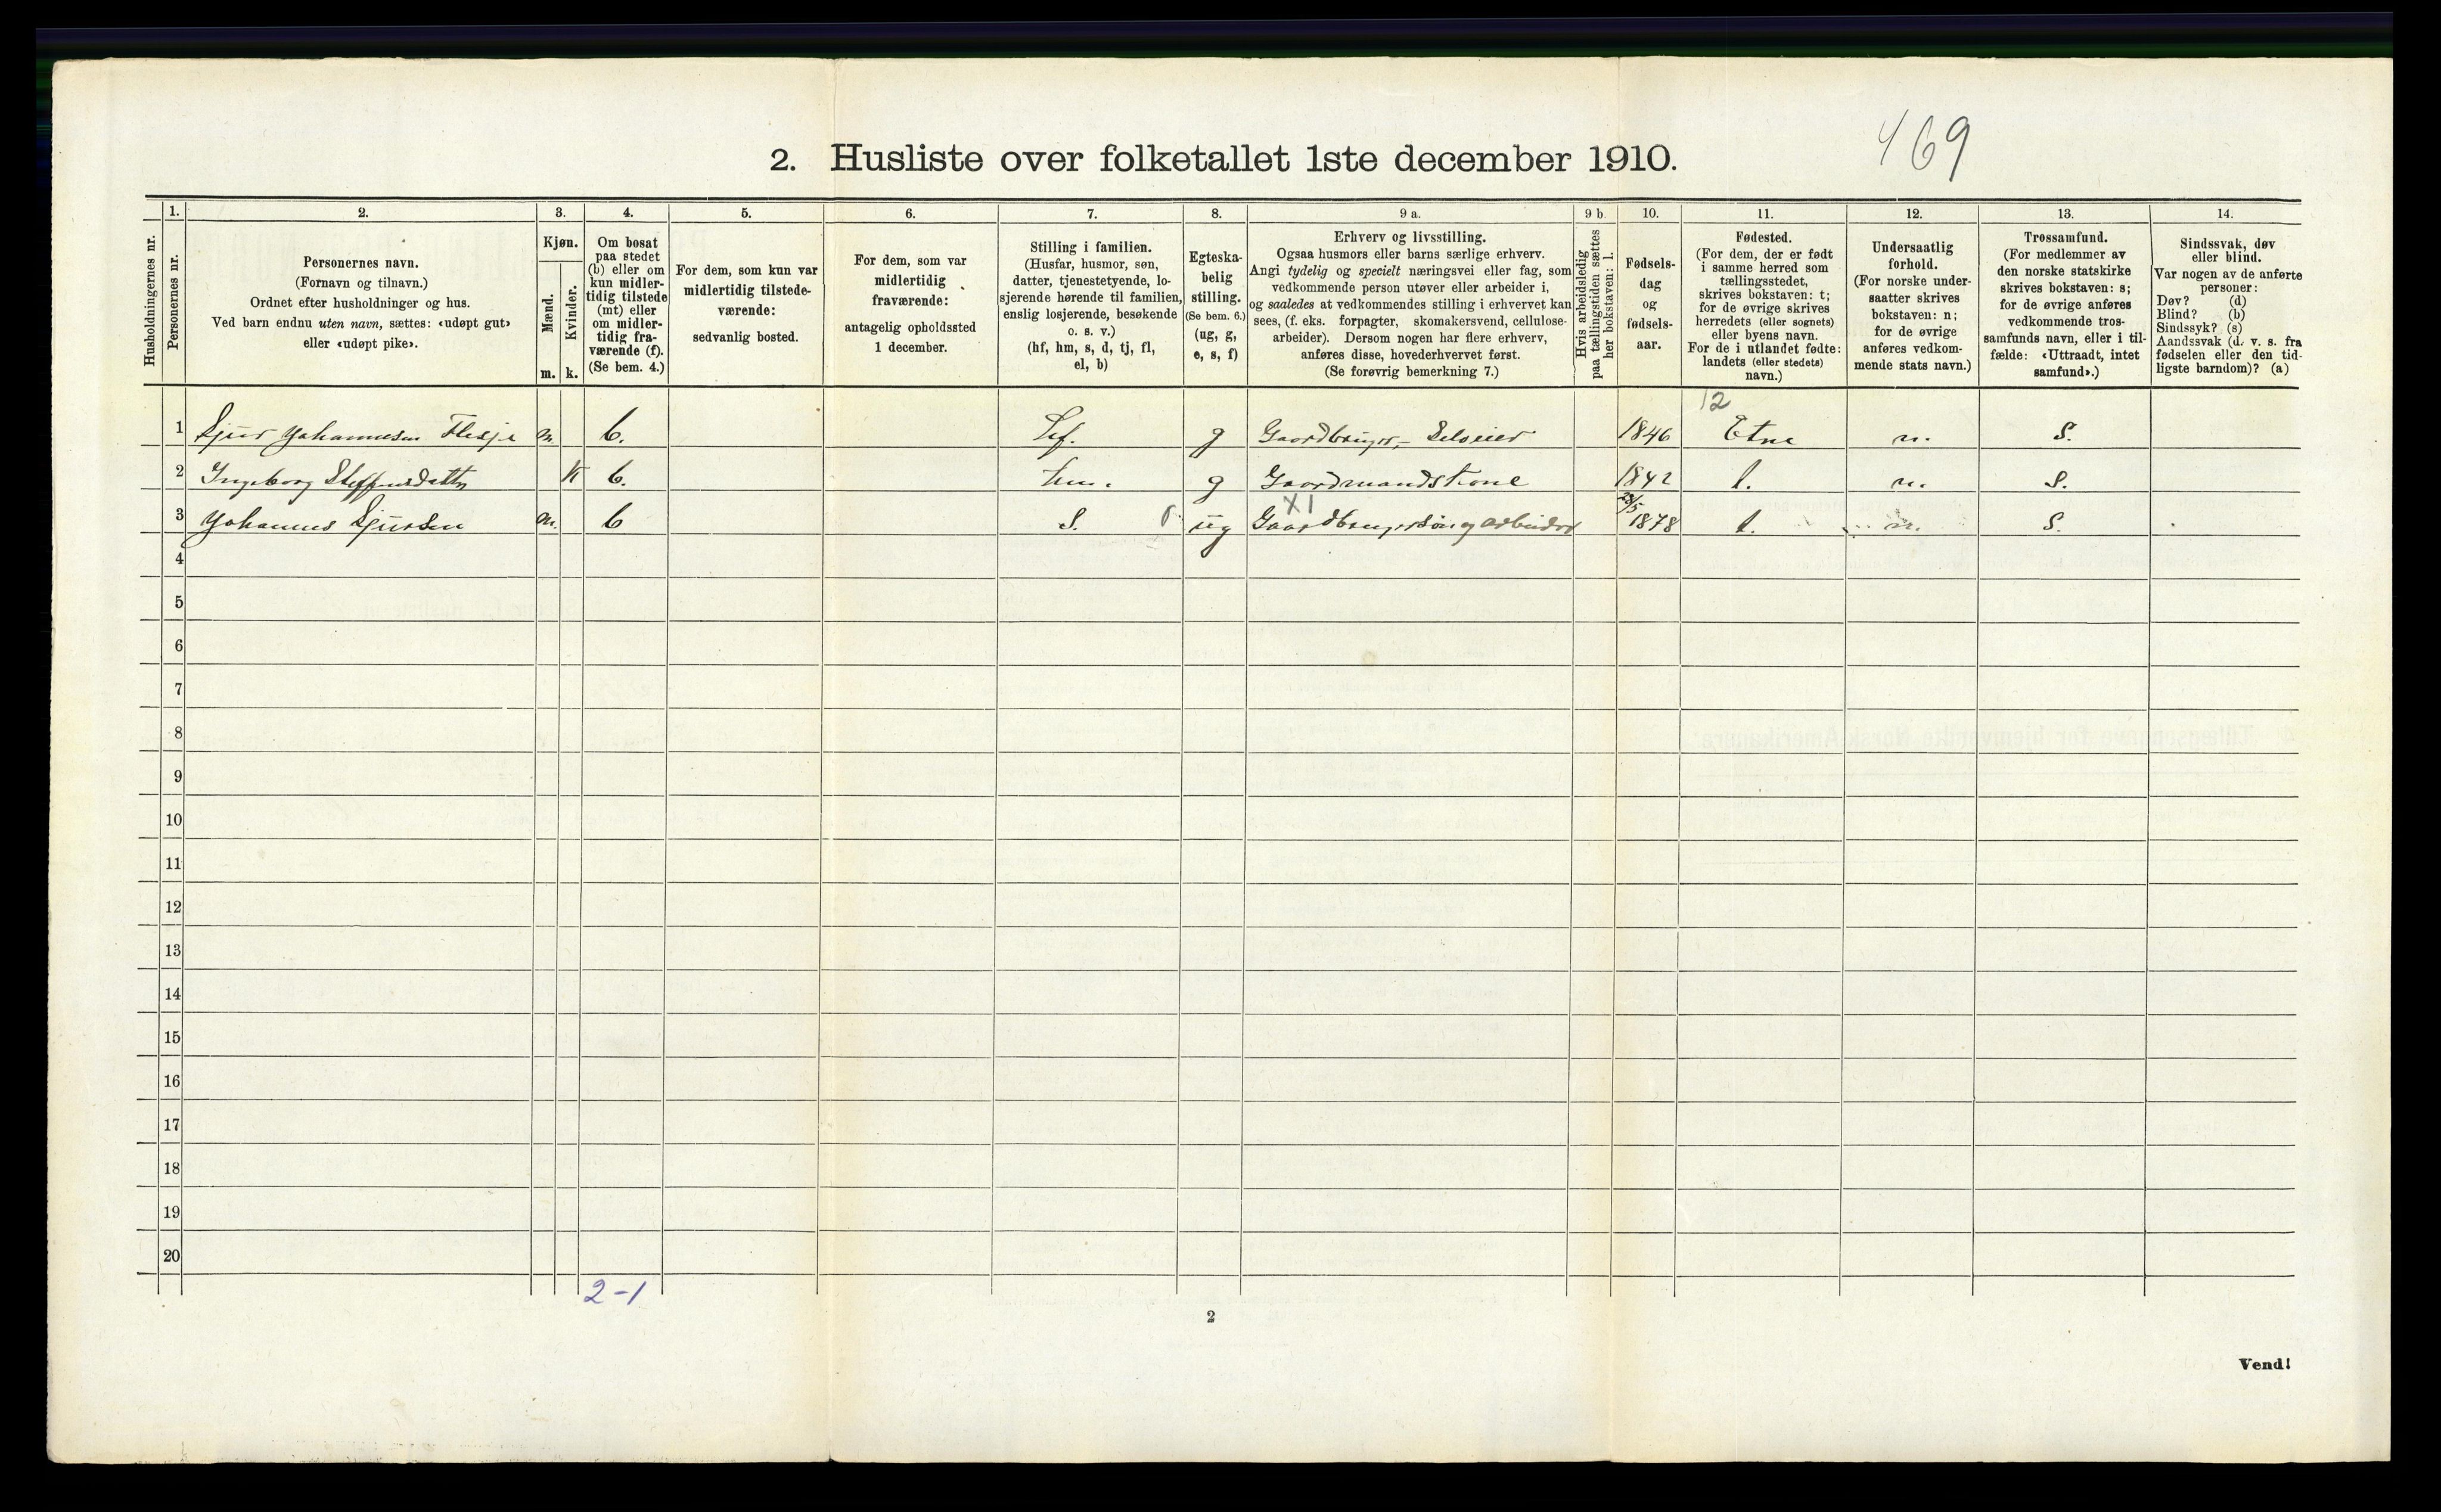 469
2. Husliste over folketallet 1ste december 1910.
Husholdningernes nr.
1.
Personernes nr.
2.
Personernes navn.
(Fornavn og tilnavn.)
Ordnet efter husholdninger og hus.
Ved barn endnu uten navn, sættes: «udøpt gut»
eller «udøpt pike».
3.
Kjøn.
Mænd.
Kvinder.
m. k.
4.
Om bosat
paa stedet
(b) eller om
kun midler-
tidig tilstede
(mt) eller
om midler-
tidig fra-
værende (f).
(Se bem. 4.)
5.
For dem, som kun var
midlertidig tilstede-
værende:
sedvanlig bosted.
6.
For dem, som var
midlertidig
fraværende:
antagelig opholdssted
1 december.
7.
Stilling i familien.
(Husfar, husmor, søn,
datter, tjenestetyende, lo-
sjerende hørende til familien,
enslig losjerende, besøkende
o. s. v.)
(hf, hm, s, d, tj, fl,
el, b)
8.
Egteska-
belig
stilling.
(Se bem. 6.)
(ug, g,
e, s, f)
9 a.
Erhverv og livsstilling.
Ogsaa husmors eller barns særlige erhverv.
Angi tydelig og specielt næringsvei eller fag, som
vedkommende person utøver eller arbeider i,
og saaledes at vedkommendes stilling i erhvervet kan
sees, (f. eks. forpagter, skomakersvend, cellulose-
arbeider). Dersom nogen har flere erhverv,
anføres disse, hovederhvervet først.
(Se forøvrig bemerkning 7.)
9 b.
Hvis arbeidsledig
paa tællingstiden sættes
her bokstaven: l.
10.
Fødsels-
dag
og
fødsels-
aar.
11.
Fødested.
(For dem, der er født
i samme herred som
tællingsstedet,
skrives bokstaven: t;
for de øvrige skrives
herredets (eller sognets)
eller byens navn.
For de i utlandet fødte:
landets (eller stedets)
navn.)
12.
Undersaatlig
forhold.
(For norske under-
saatter skrives
bokstaven: n;
for de øvrige
anføres vedkom-
mende stats navn.)
13.
Trossamfund.
(For medlemmer av
den norske statskirke
skrives bokstaven: s;
for de øvrige anføres
vedkommende tros-
samfunds navn, eller i til-
fælde: «Uttraadt, intet
samfund».)
14.
Sindssvak, døv
eller blind.
Var nogen av de anførte
personer:
Døv? (d)
Blind? (b)
Sindssyk? (s)
Aandssvak (d. v. s. fra
fødselen eller den tid-
ligste barndom)? (a)
12
1 Sjur Johannesen Flesje m. b. hf. g Gaardbruger, Selveier 1846 Etne n. S.
2 Ingeborg Steffensdatter K b. hm. g Gaardmandskone 1842 t. n. S.
X1
3 Johannes Sjursen m. b S. ug Gaardbrugersøn og arbeider 1878 t. n. S.
4
5
6
7
8
9
10
11
12
13
14
15
16
17
18
19
20
2-1
2
Vend!